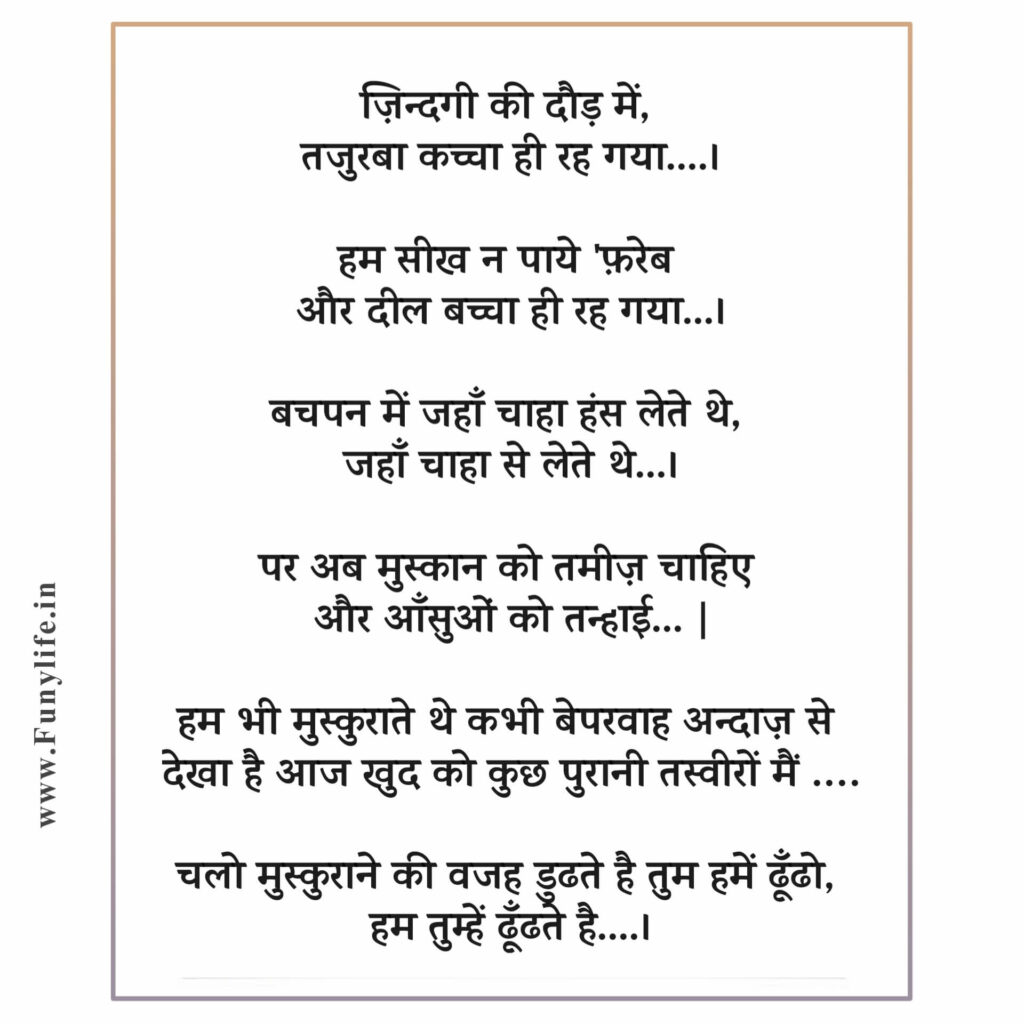 ज़िन्दगी की दौड़ में,
तजुरबा कच्चा ही रह गया....।
हम सीख न पाये 'फ़रेब
और दील बच्चा ही रह गया...।
बचपन में जहाँ चाहा हंस लेते थे,
जहाँ चाहा से लेते थे...।
पर अब मुस्कान को तमीज़ चाहिए
और आँसुओं को तन्हाई... |
हम भी मुस्कुराते थे कभी बेपरवाह अन्दाज़ से
देखा है आज खुद को कुछ पुरानी तस्वीरों मैं ....
चलो मुस्कुराने की वजह डुढते है तुम हमें ढूँढो,
हम तुम्हें ढूँढते है....।
www.Funylife.in